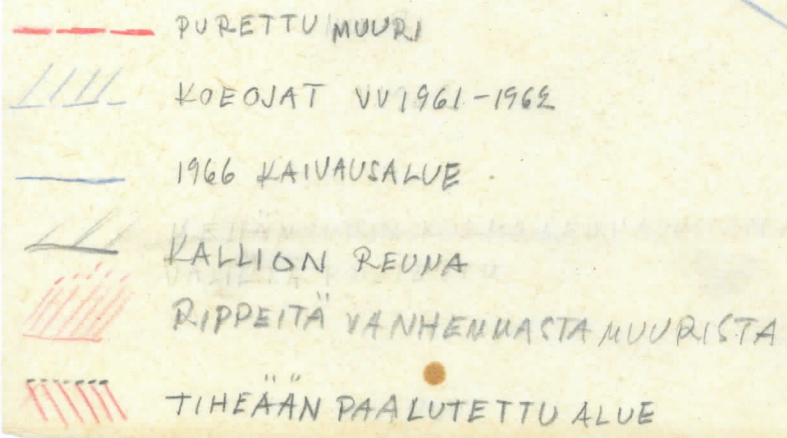 PURETTU MUURI
KOEOJAT VV 1961-1962
1966 KAIVAUSALUE
KALLION REUNA
RIPPEITÄ VANHEMMASTA MUURISTA
TIHEÄÄN PAALUTETTU ALUE